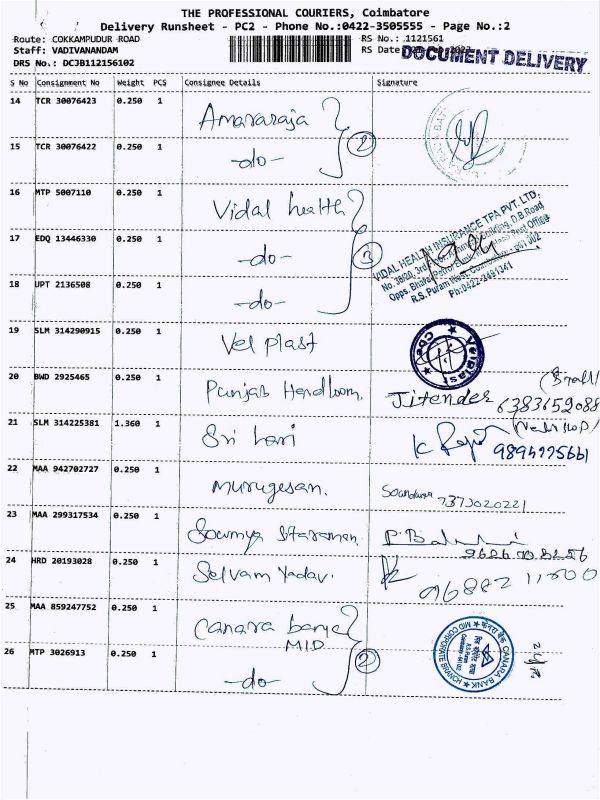 THE PROFESSIONAL COURIERS, Coimbatore
Delivery Runsheet - PC2 - Phone No.:0422-3505555 - Page No.:2
Route: COKKAMPUDUR ROAD RS No.: 1121561
Staff: VADIVANANDAM RS Date
DOCUMENT DELIVERY
DRS No.: DCJB112156102
S No Consignment No Weight PCS Consignee Details Signature
14 TCR 30076423 0.250 1 Amararaja
2
15 TCR 30076422 0.250 1 -do-
16 MTP 5007110 0.250 1 Vidal health
VIDAL HEALTH INSURANCE TPA PVT. LTD.
No. 38/20, 3rd D.B.Road
Opps. Bharat Petrol Bunk, Post Office
R.S. Puram West, Coimbatore - 641 002
Ph:0422-2491341
17 EDQ 13446330 0.250 1 -do-
3
18 UPT 2136508 0.250 1 -do-
19 SLM 314290915 0.250 1 Vel plast
Velplast
20 BWD 2925465 0.250 1 Punjab Handloom. Jitender 6383659088
21 SLM 314225381 1.360 1 Sri hari
22 MAA 942702727 0.250 1 Murugesan. 7373020221
23 MAA 299317534 0.250 1 Sowmya Sitaraman.
24 HRD 20193028 0.250 1 Selvam Yadav. 9688211500
25 MAA 859247752 0.250 1 Canara bank
MID
CANARA BANK
MID CORPORATE BRANCH
2
26 MTP 3026913 0.250 1 -do-